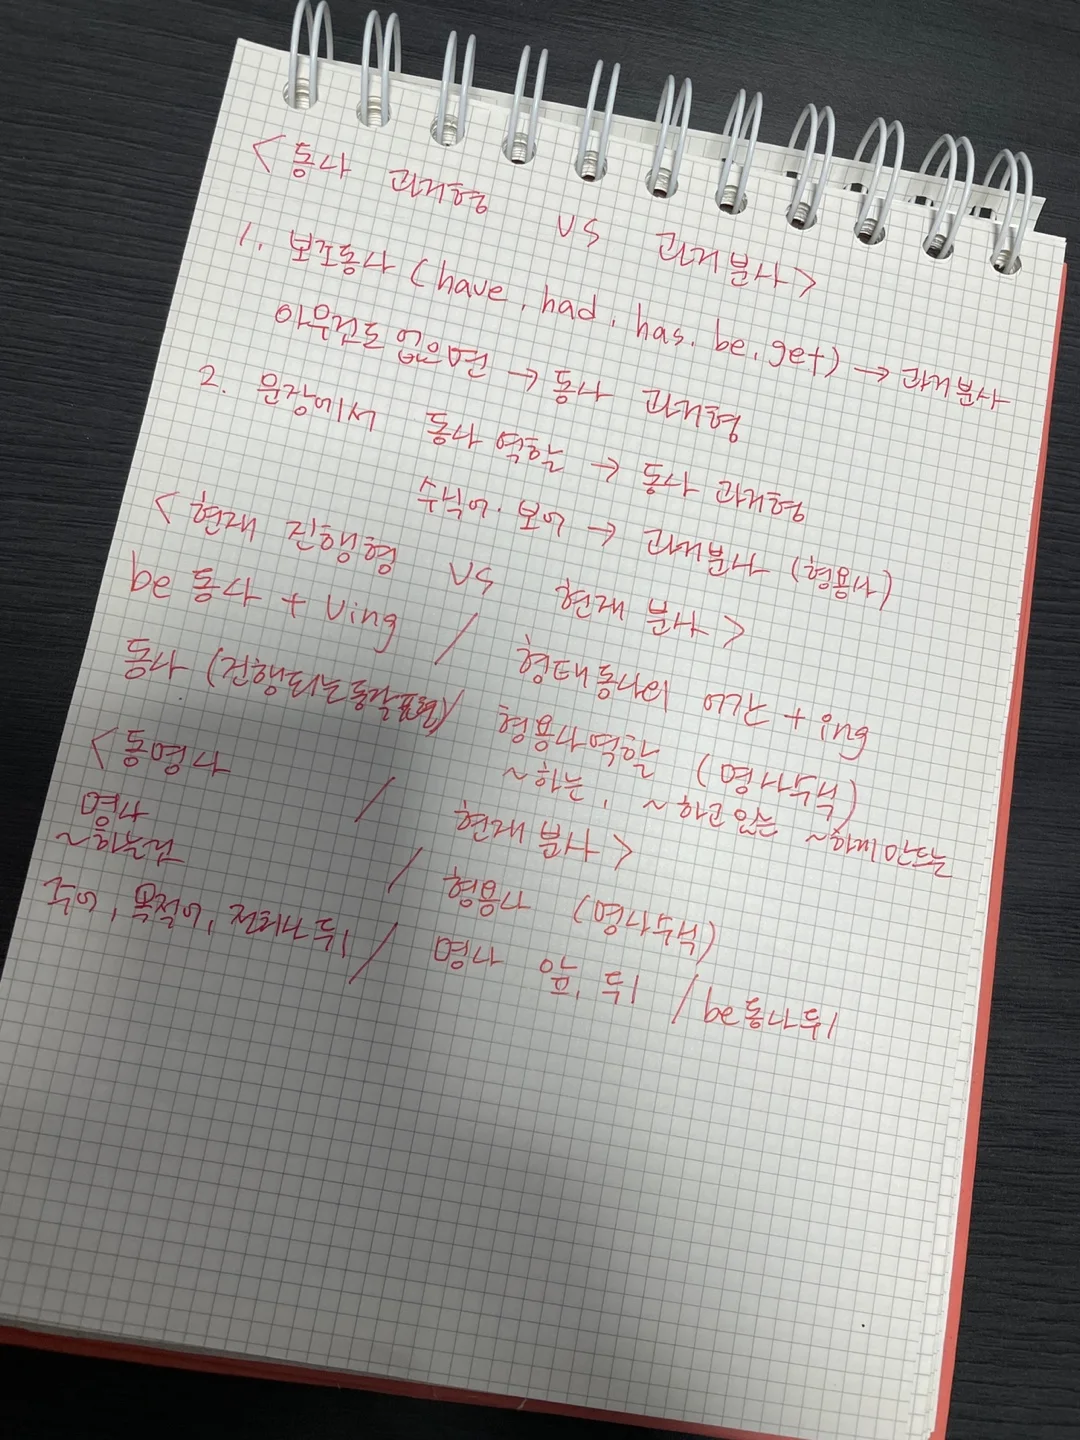 <동사 과거형 VS 과거분사>
1. 보조동사 (have, had, has, be, get) → 과거분사
아무것도 없으면 → 동사 과거형
2. 문장에서 동사 역할 → 동사 과거형
수식어·보어 → 과거분사 (형용사)
<현재 진행형 VS 현재 분사>
be 동사 + Ving / 형태동사의 어간 + ing
동사 (진행되는동작표현) 형용사역할 (명사수식)
~하는, ~하고 있는 ~하게 만드는
<동명사 / 현재 분사>
명사 / 형용사 (명사수식)
~하는것
주어, 목적어, 전치사 뒤 / 명사 앞, 뒤 / be동사 뒤